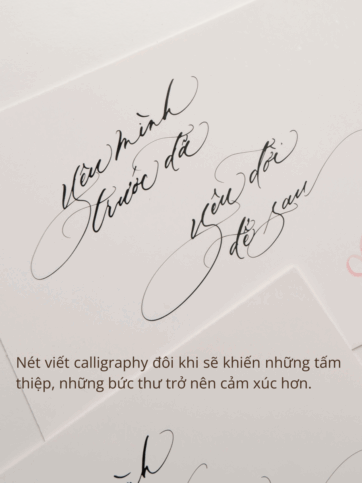 yêu mình
trước đã
yêu đời
để sau
Nét viết calligraphy đôi khi sẽ khiến những tấm
thiệp, những bức thư trở nên cảm xúc hơn.